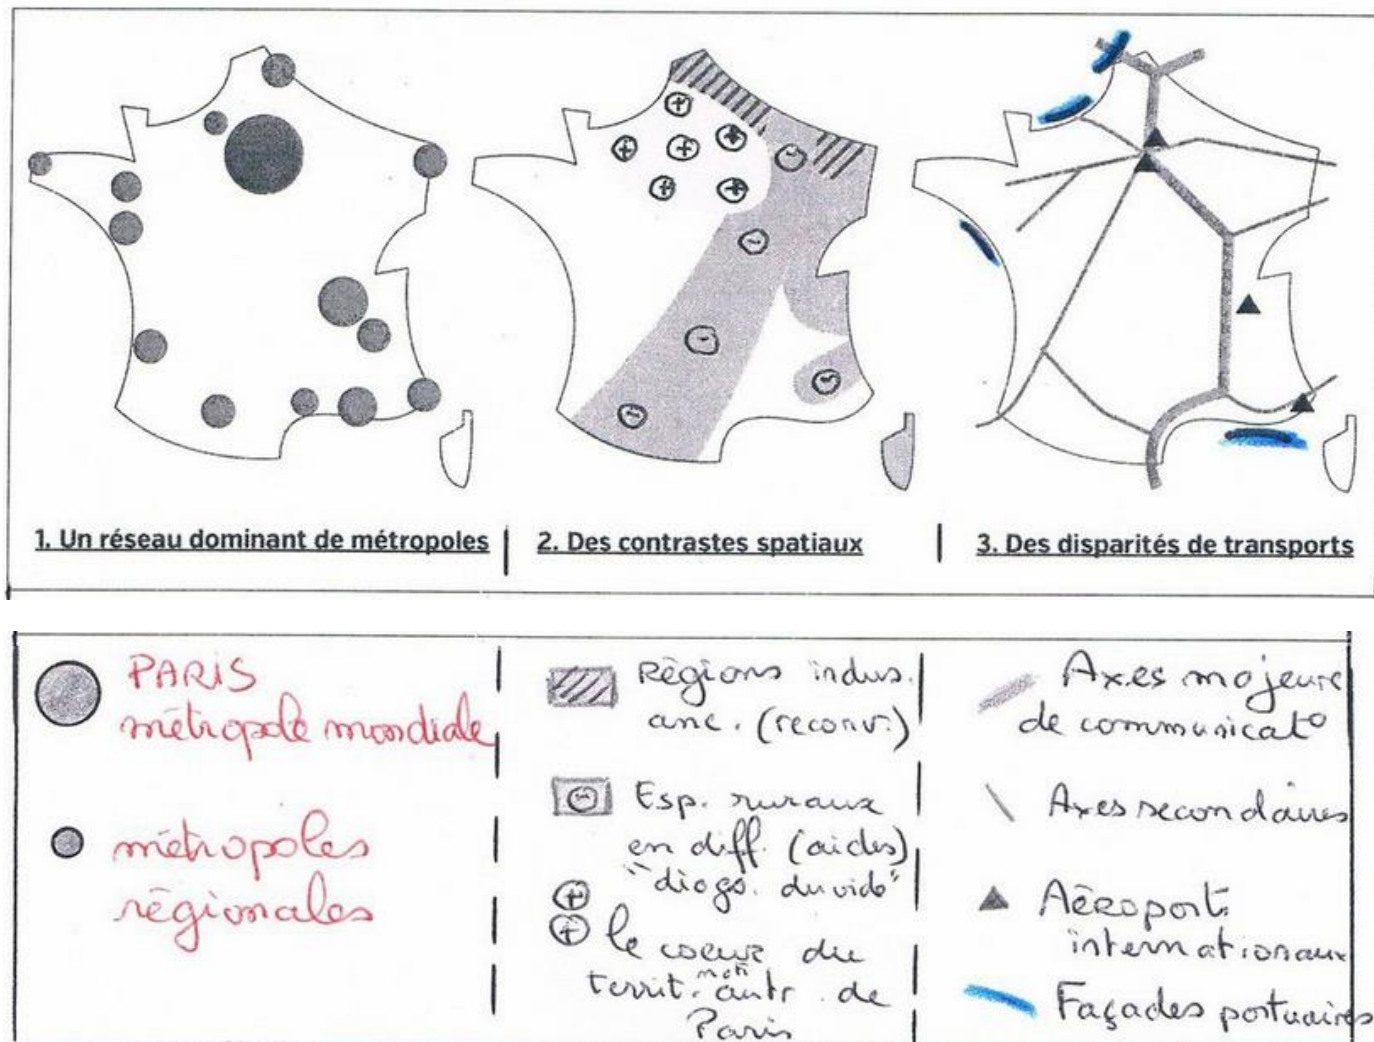 1. Un réseau dominant de métropoles
2. Des contrastes spatiaux
3. Des disparités de transports
PARIS
métropole mondiale
métropoles
régionales
Régions indus.
anc. (reconv.)
Esp. ruraux
en diff. (aides)
"diago. du vide"
le coeur du
territ. nati autr. de
Paris
Axes majeure
de communicat°
Axes secondaires
Aéroport
internationaux
Façades portuaires